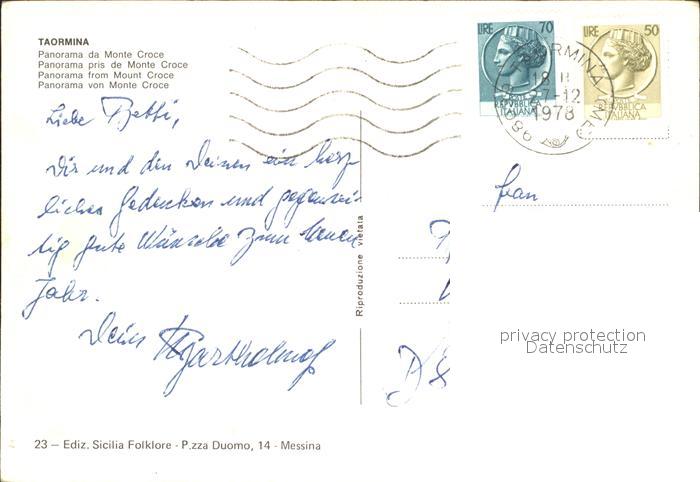 TAORMINA
Panorama da Monte Croce
Panorama pris de Monte Croce
Panorama from Mount Croce
Panorama von Monte Croce
LIRE 70
POSTE
REPVBBLICA
ITALIANA
LIRE 50
REPVBBLICA
ITALIANA
TAORMINA
18
7-12
1978
98036
Liebe
Dir und den Deinen ein herz
liches Gedenken und gegensei-
tig gute Wünsche zum Neuen
Jahr.
Dein
Riproduzione vietata
Frau
privacy protection
Datenschutz
23 — Ediz. Sicilia Folklore - P.zza Duomo, 14 - Messina